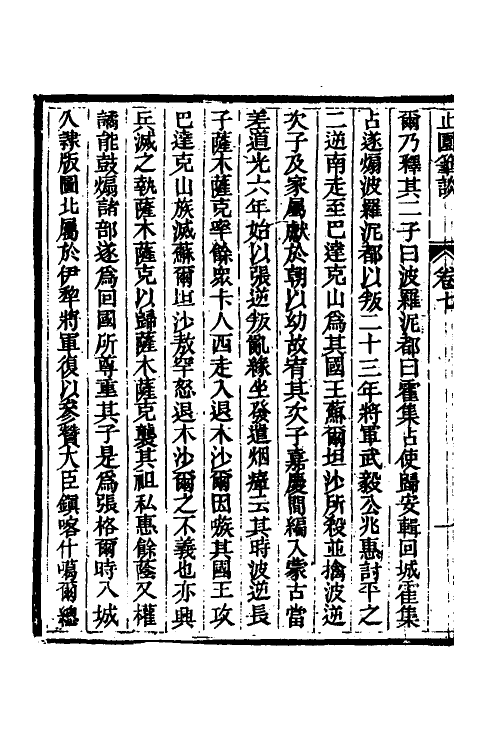 止園筆談 卷七
爾乃釋其二子曰波羅泥都曰霍集占使歸安輯回城霍集
占遂煽波羅泥都以叛二十三年將軍武毅公兆惠討平之
二逆南走至巴達克山為其國王蘇爾坦沙所殺並擒波逆
次子及家屬獻於朝以幼故宥其次子嘉慶間編入蒙古當
差道光六年始以張逆叛亂緣坐發遣烟瘴云其時波逆長
子薩木薩克率餘眾卡人西走入退木沙爾因嗾其國王攻
巴達克山族滅蘇爾坦沙敖罕怒退木沙爾之不義也亦興
兵滅之執薩木薩克以歸薩木薩克襲其祖私惠餘蔭又權
譎能鼓煽諸部遂為回國所尊重其子是為張格爾時八城
久隸版圖北屬於伊犁將軍復以參贊大臣鎮喀什噶爾總